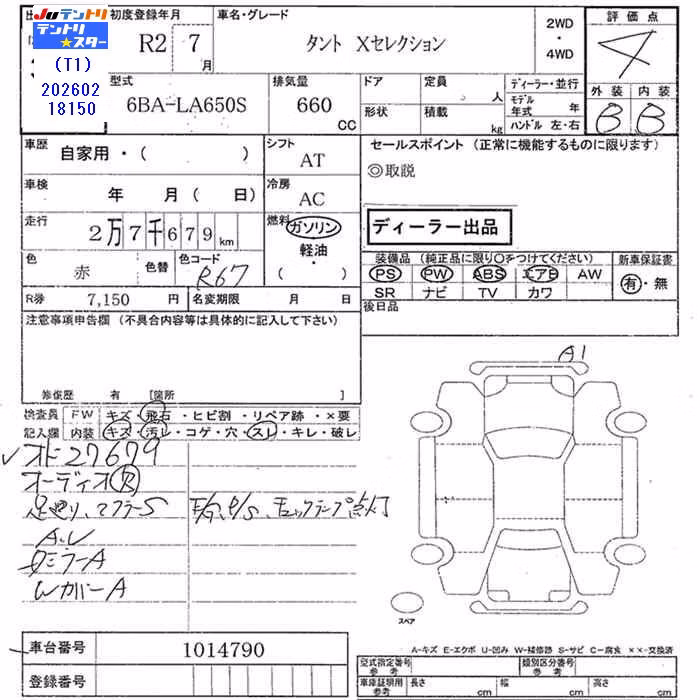 出
Juテントリ
テントリ★スター
(T1)
202602
18150
初度登録年月
R2 7月
車名・グレード
タント Xセレクション
2WD
・
4WD
評価点
4
外装 内装
B B
型式
6BA-LA650S
排気量
660
CC
ドア
形状
定員
人
積載
kg
ディーラー・並行
モデル年式 年
ハンドル 左・右
車歴
自家用・( )
シフト
AT
車検
年 月( 日)
冷房
AC
走行
2万7千679km
燃料
ガソリン
軽油・
( )
色
赤
色替
色コード
R67
R券 7,150 円
名変期限 月 日
セールスポイント (正常に機能するものに限ります)
◎取説
ディーラー出品
装備品 (純正品に限り○をつけてください)
PS PW ABS エアB AW
SR ナビ TV カワ
新車保証書
有・無
後日品
注意事項申告欄 (不具合内容等は具体的に記入して下さい)
修復歴 有 [箇所 ]
検査員
記入欄
FW キズ・飛石・ヒビ割・リペア跡・×要
内装 キズ・汚レ・コゲ・穴・スレ・キレ・破レ
27679
オーディオR
足廻り、マフラーS
チェックランプ点灯
ミラーA
WカバーA
A1
スペア
A-キズ E-エクボ U-凹み W-補修跡 S-サビ C-腐食 ××-交換済
車台番号 1014790
登録番号
型式指定番号
参考
類別区分番号
参考
車庫証明用
参考
長さ cm 幅 cm 高さ cm